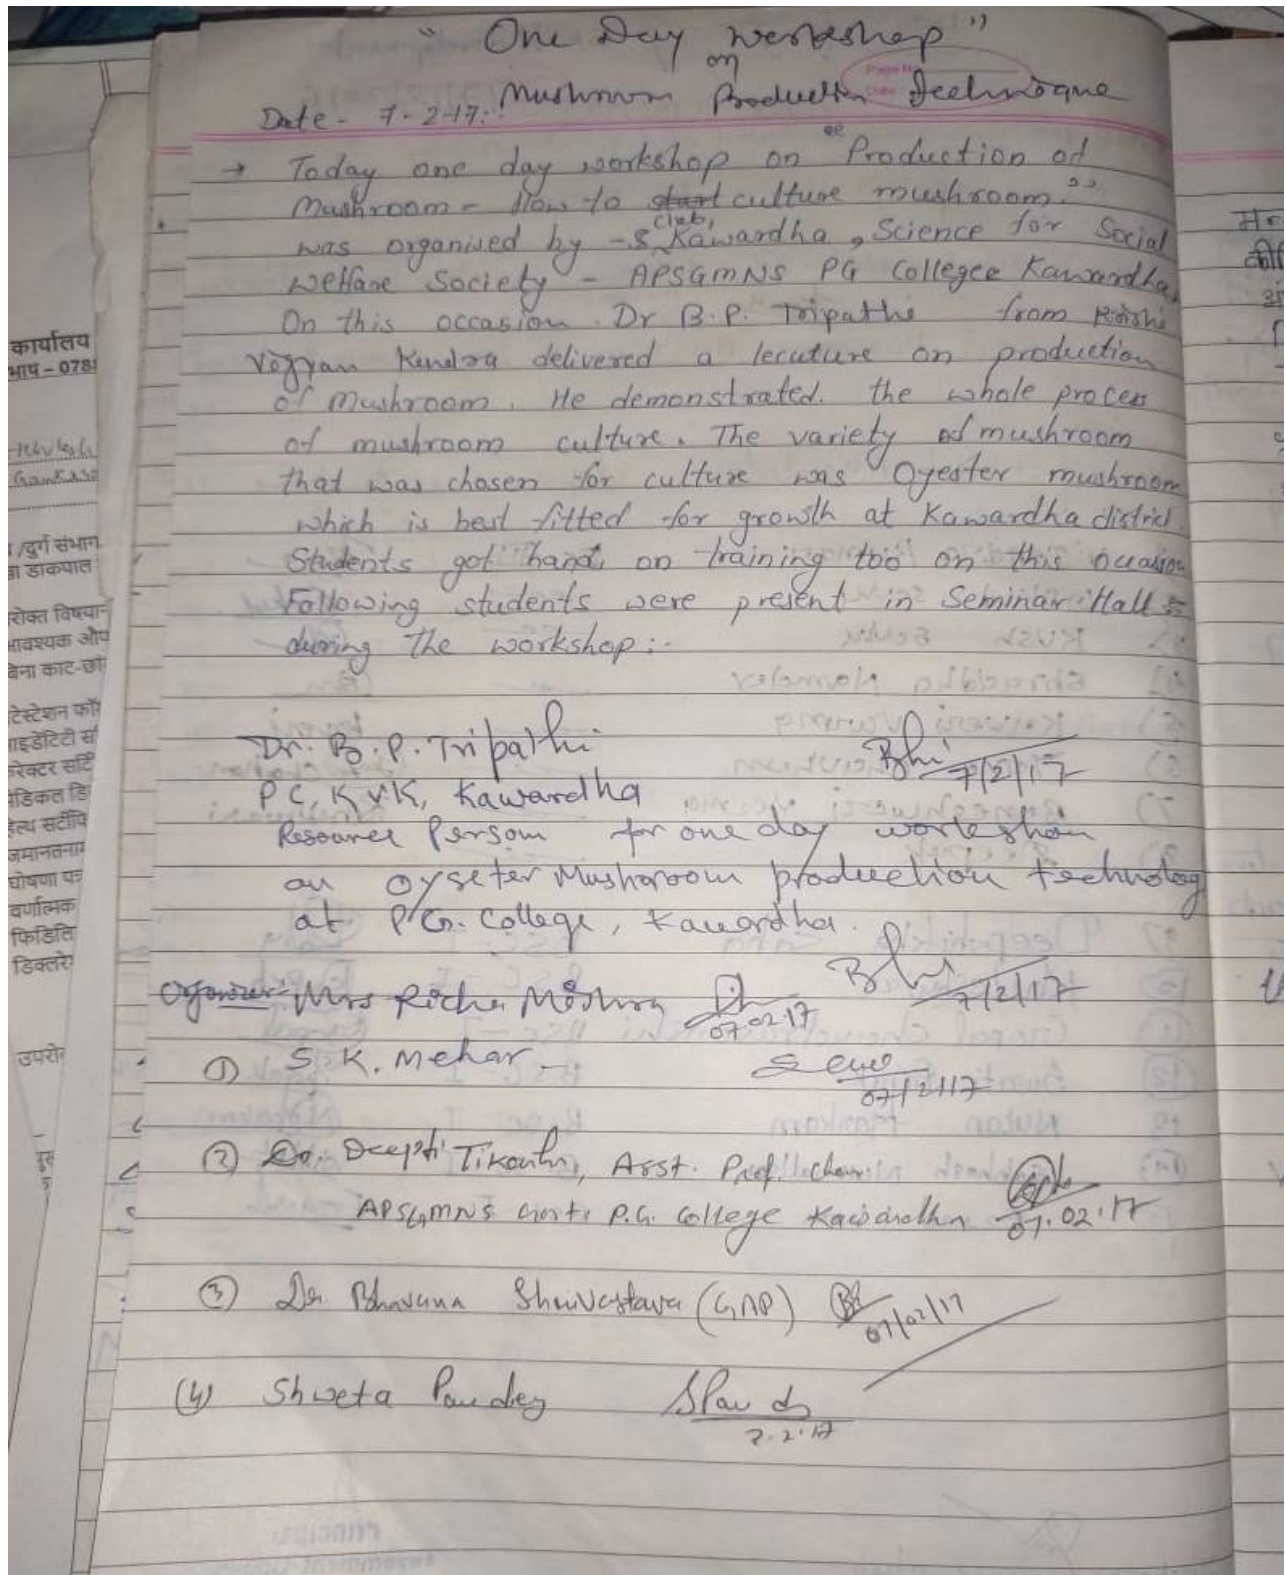 " One Day Workshop "
on
Mushroom Production Technique
Date - 7-2-17:
→ Today one day workshop on "Production of
Mushroom - How to start culture mushroom."
was organised by - S. club, Kawardha, Science for Social
Welfare Society - APSGMNS PG Collegee Kawardha.
On this occasion Dr B.P. Tripathi from Krishi
Vigyan Kendra delivered a lecuture on production
of mushroom. He demonstrated. the whole process
of mushroom culture. The variety of mushroom
that was chosen for culture was Oyester mushroom
which is best fitted for growth at Kawardha district.
Students got hand on training too on this occasion
Following students were present in Seminar Hall
during the workshop:-
Dr. B.P. Tripathi 7/2/17
PC, KVK, Kawardha
Resource Person for one day workshop
on oyseter Mushroom production technolog
at P.G. College, Kawardha.
7/2/17
Organizer: Mrs Richa Mishra 07.02.17
① S. K. Mehar - 07/2/17
② Dr. Deepti Tikariha, Asst. Prof. chemis
APSGMNS Govt. P.G. College Kawardha 07.02.17
③ Dr Bhavana Shrivastava (GAP) 07/02/17
(4) Shweta Pandey 7.2.17
कार्यालय
भाष - 078
/दुर्ग संभाग
डाकपाल
बिना काट-छाँ
घोषणा पत्र
वर्णात्मक